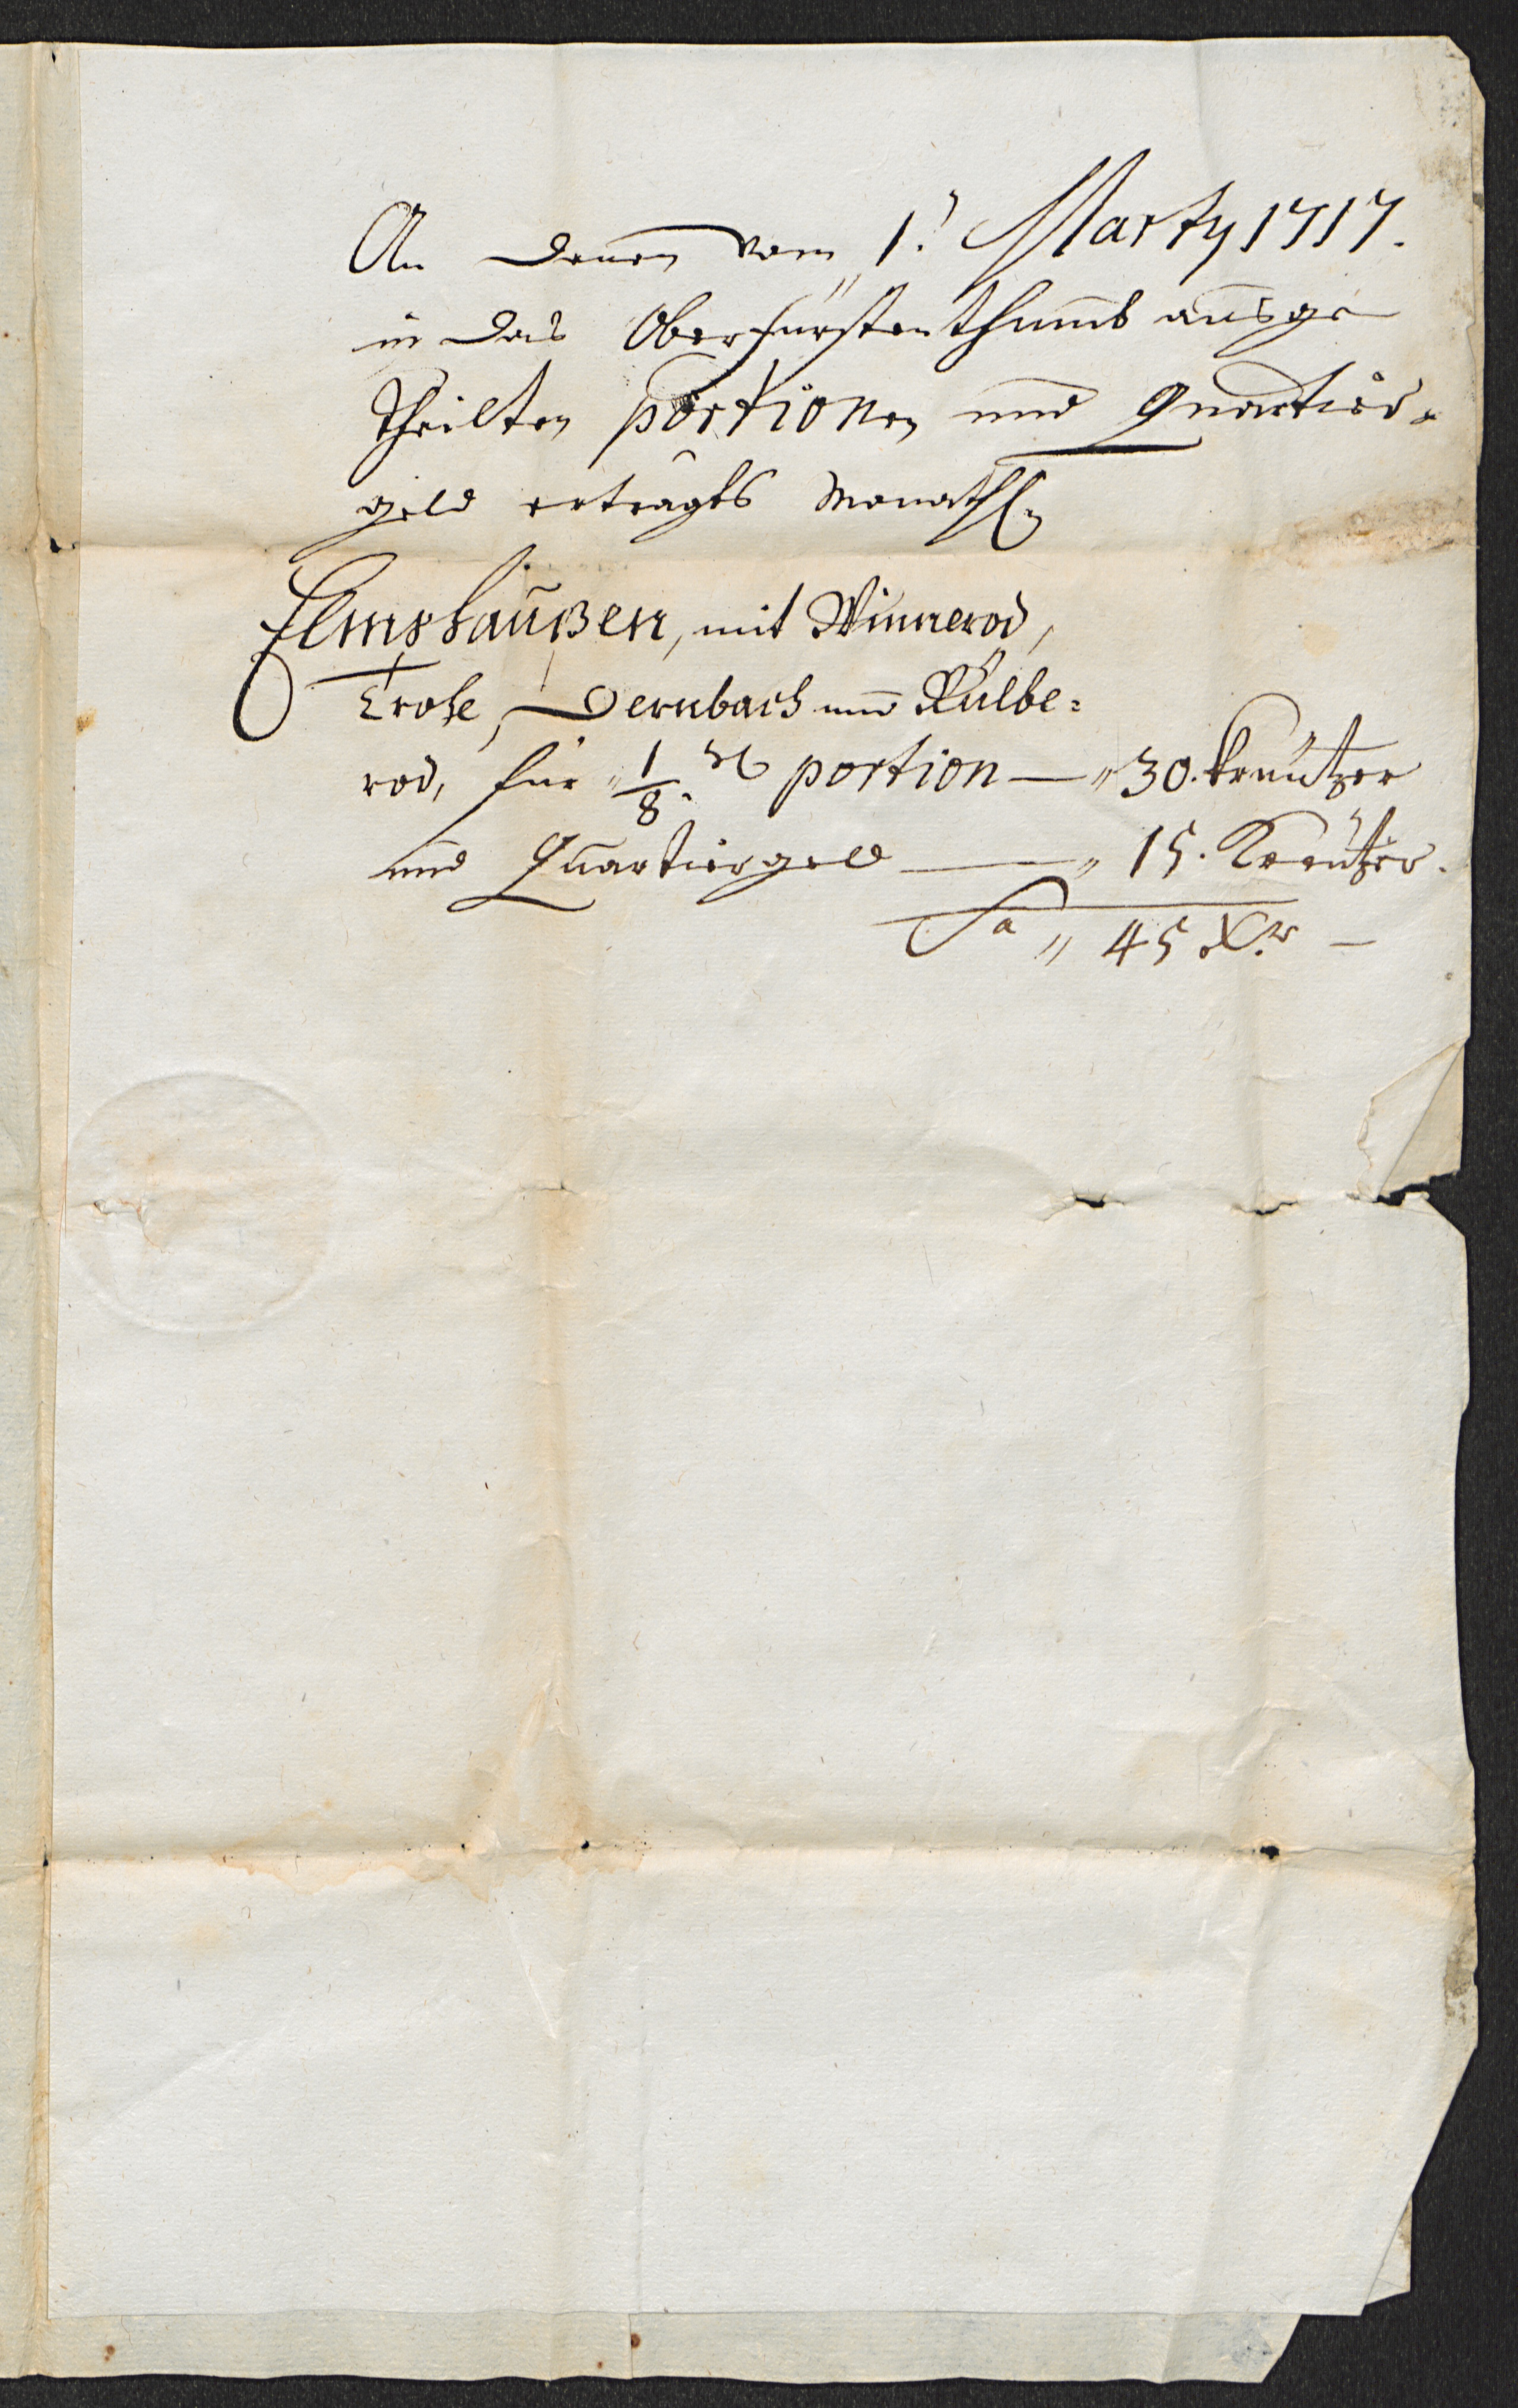 An denen vom 1. Marty 1717.
in das Oberfürstenthumb ausge
theilten portionen und Quartier-
geld ertragts Monathl.
Elmshaußen, mit Winnerod,
Trohe, Dernbach und Külbe=
rod, für 1/8. tel portion — 30. Kreützer
und Quartiergeld — 15. Kreützer.
Sa 45 Xr —